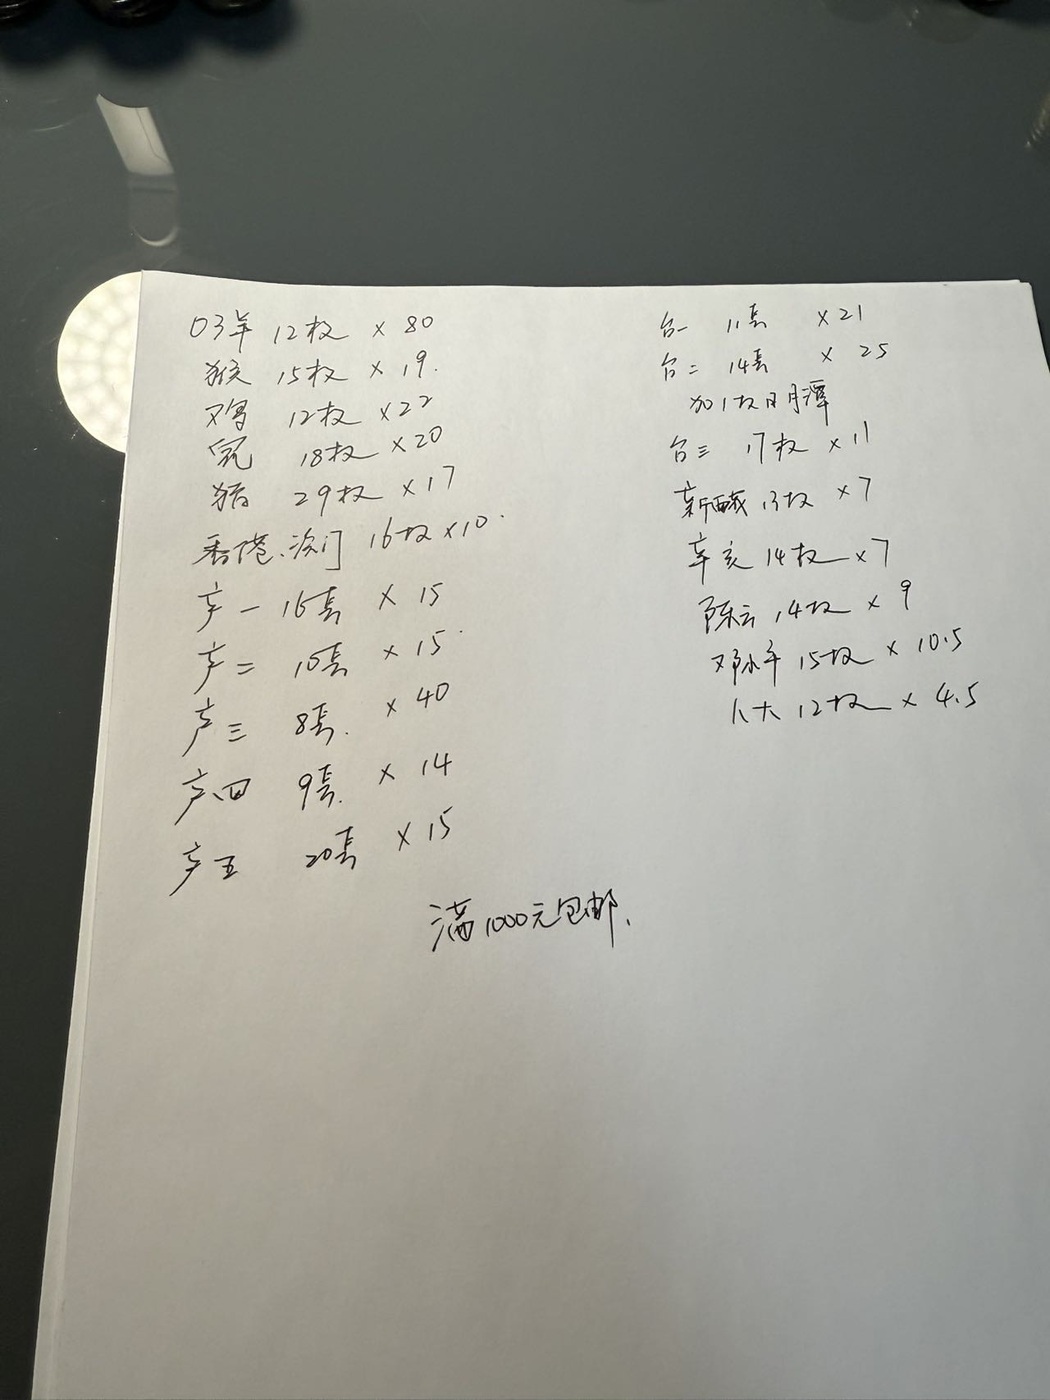 03羊 12枚 × 80
猴 15枚 × 19.
鸡 12枚 × 22
18枚 × 20
猪 29枚 × 17
香港、澳门 16枚 × 10.
产一 16套 × 15
产二 10套 × 15
产三 8套. × 40
产四 9套. × 14
产五 20套 × 15
台一 11套 × 21
台二 14套 × 25
加1枚日月潭
台三 17枚 × 11
新疆 13枚 × 7
辛亥 14枚 × 7
陈云 14枚 × 9
邓小平 15枚 × 10.5
人大 12枚 × 4.5
满1000元包邮.